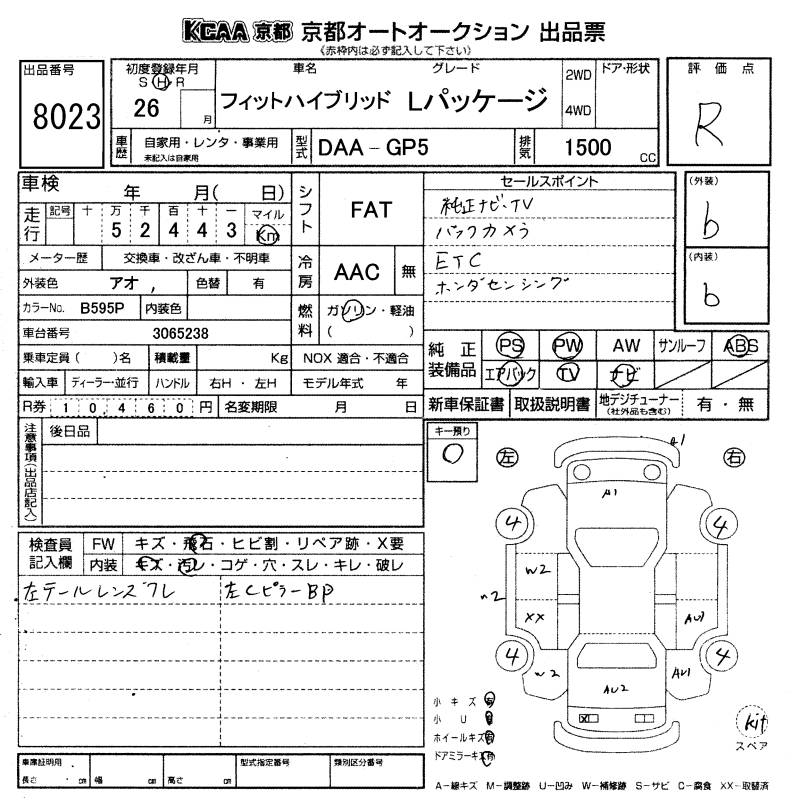 KCAA 京都 京都オートオークション 出品票
《赤枠内は必ず記入して下さい》
出品番号
8023
初度登録年月
S H R
26
月
車名
グレード
フィットハイブリッド Lパッケージ
2WD
4WD
ドア・形状
評価点
R
車歴
自家用・レンタ・事業用
未記入は自家用
型式
DAA-GP5
排気
1500
CC
車検 年 月( 日)
走行
記号 十 万 千 百 十 一 マイル
5 2 4 4 3 Km
メーター歴 交換車・改ざん車・不明車
外装色 アオ, 色替 有
カラーNo. B595P 内装色
車台番号 3065238
乗車定員( )名 積載量 Kg
輸入車 ディーラー・並行 ハンドル 右H・左H
R券 10,460円 名変期限 月 日
シフト FAT
冷房 AAC 無
燃料 ガソリン・軽油
( )
NOX 適合・不適合
モデル年式 年
セールスポイント
純正ナビ・TV
バックカメラ
ETC
ホンダセンシング
(外装)
b
(内装)
b
純正装備品
PS PW AW サンルーフ ABS
エアバック TV ナビ
新車保証書 取扱説明書 地デジチューナー
(社外品も含む)
有・無
注意事項(出品店記入)
後日品
キー預り
0
左
右
A1
A1
4
4
W2
n2
XX
AU1
4
4
W2
AU1
AU2
X
検査員記入欄
FW キズ・飛石・ヒビ割・リペア跡・X要
内装 キズ・汚レ・コゲ・穴・スレ・キレ・破レ
左テールレンズワレ
左CピラーBP
小キズ有
小U有
ホイールキズ有
ドアミラーキズ有
kit
スペア
車庫証明用
長さ ・ cm 幅 cm 高さ cm
型式指定番号
類別区分番号
A-線キズ M-調整跡 U-凹み W-補修跡 S-サビ C-腐食 XX-取替済